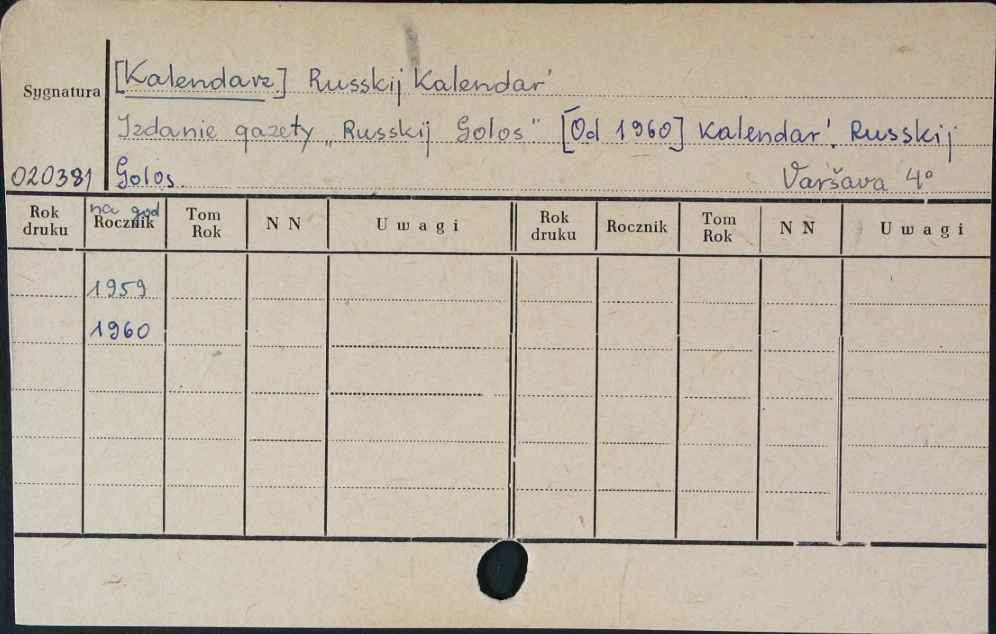 Sygnatura
[Kalendarz] Russkij Kalendar'
Izdanie gazety „Russkij Golos" [Od 1960] Kalendar'. Russkij
020381 Golos. Varšava 4°
Rok druku na god Rocznik Tom Rok N N Uwagi Rok druku Rocznik Tom Rok N N Uwagi
1959
1960